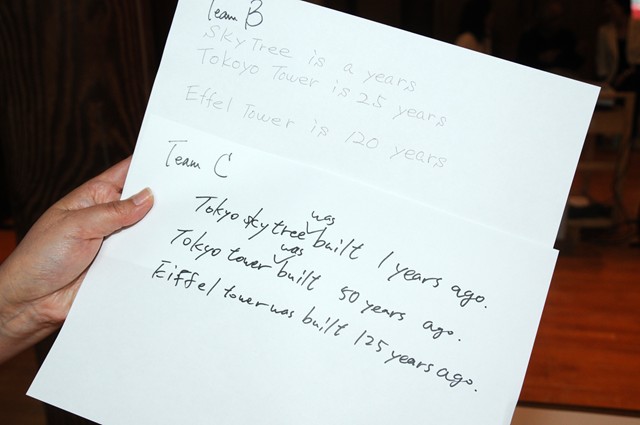 Team B
SkyTree is a years
Tokoyo Tower is 25 years
Effel Tower is 120 years
Team C
Tokyo sky tree was built 1 years ago.
Tokyo tower was built 50 years ago.
Eiffel tower was built 125 years ago.